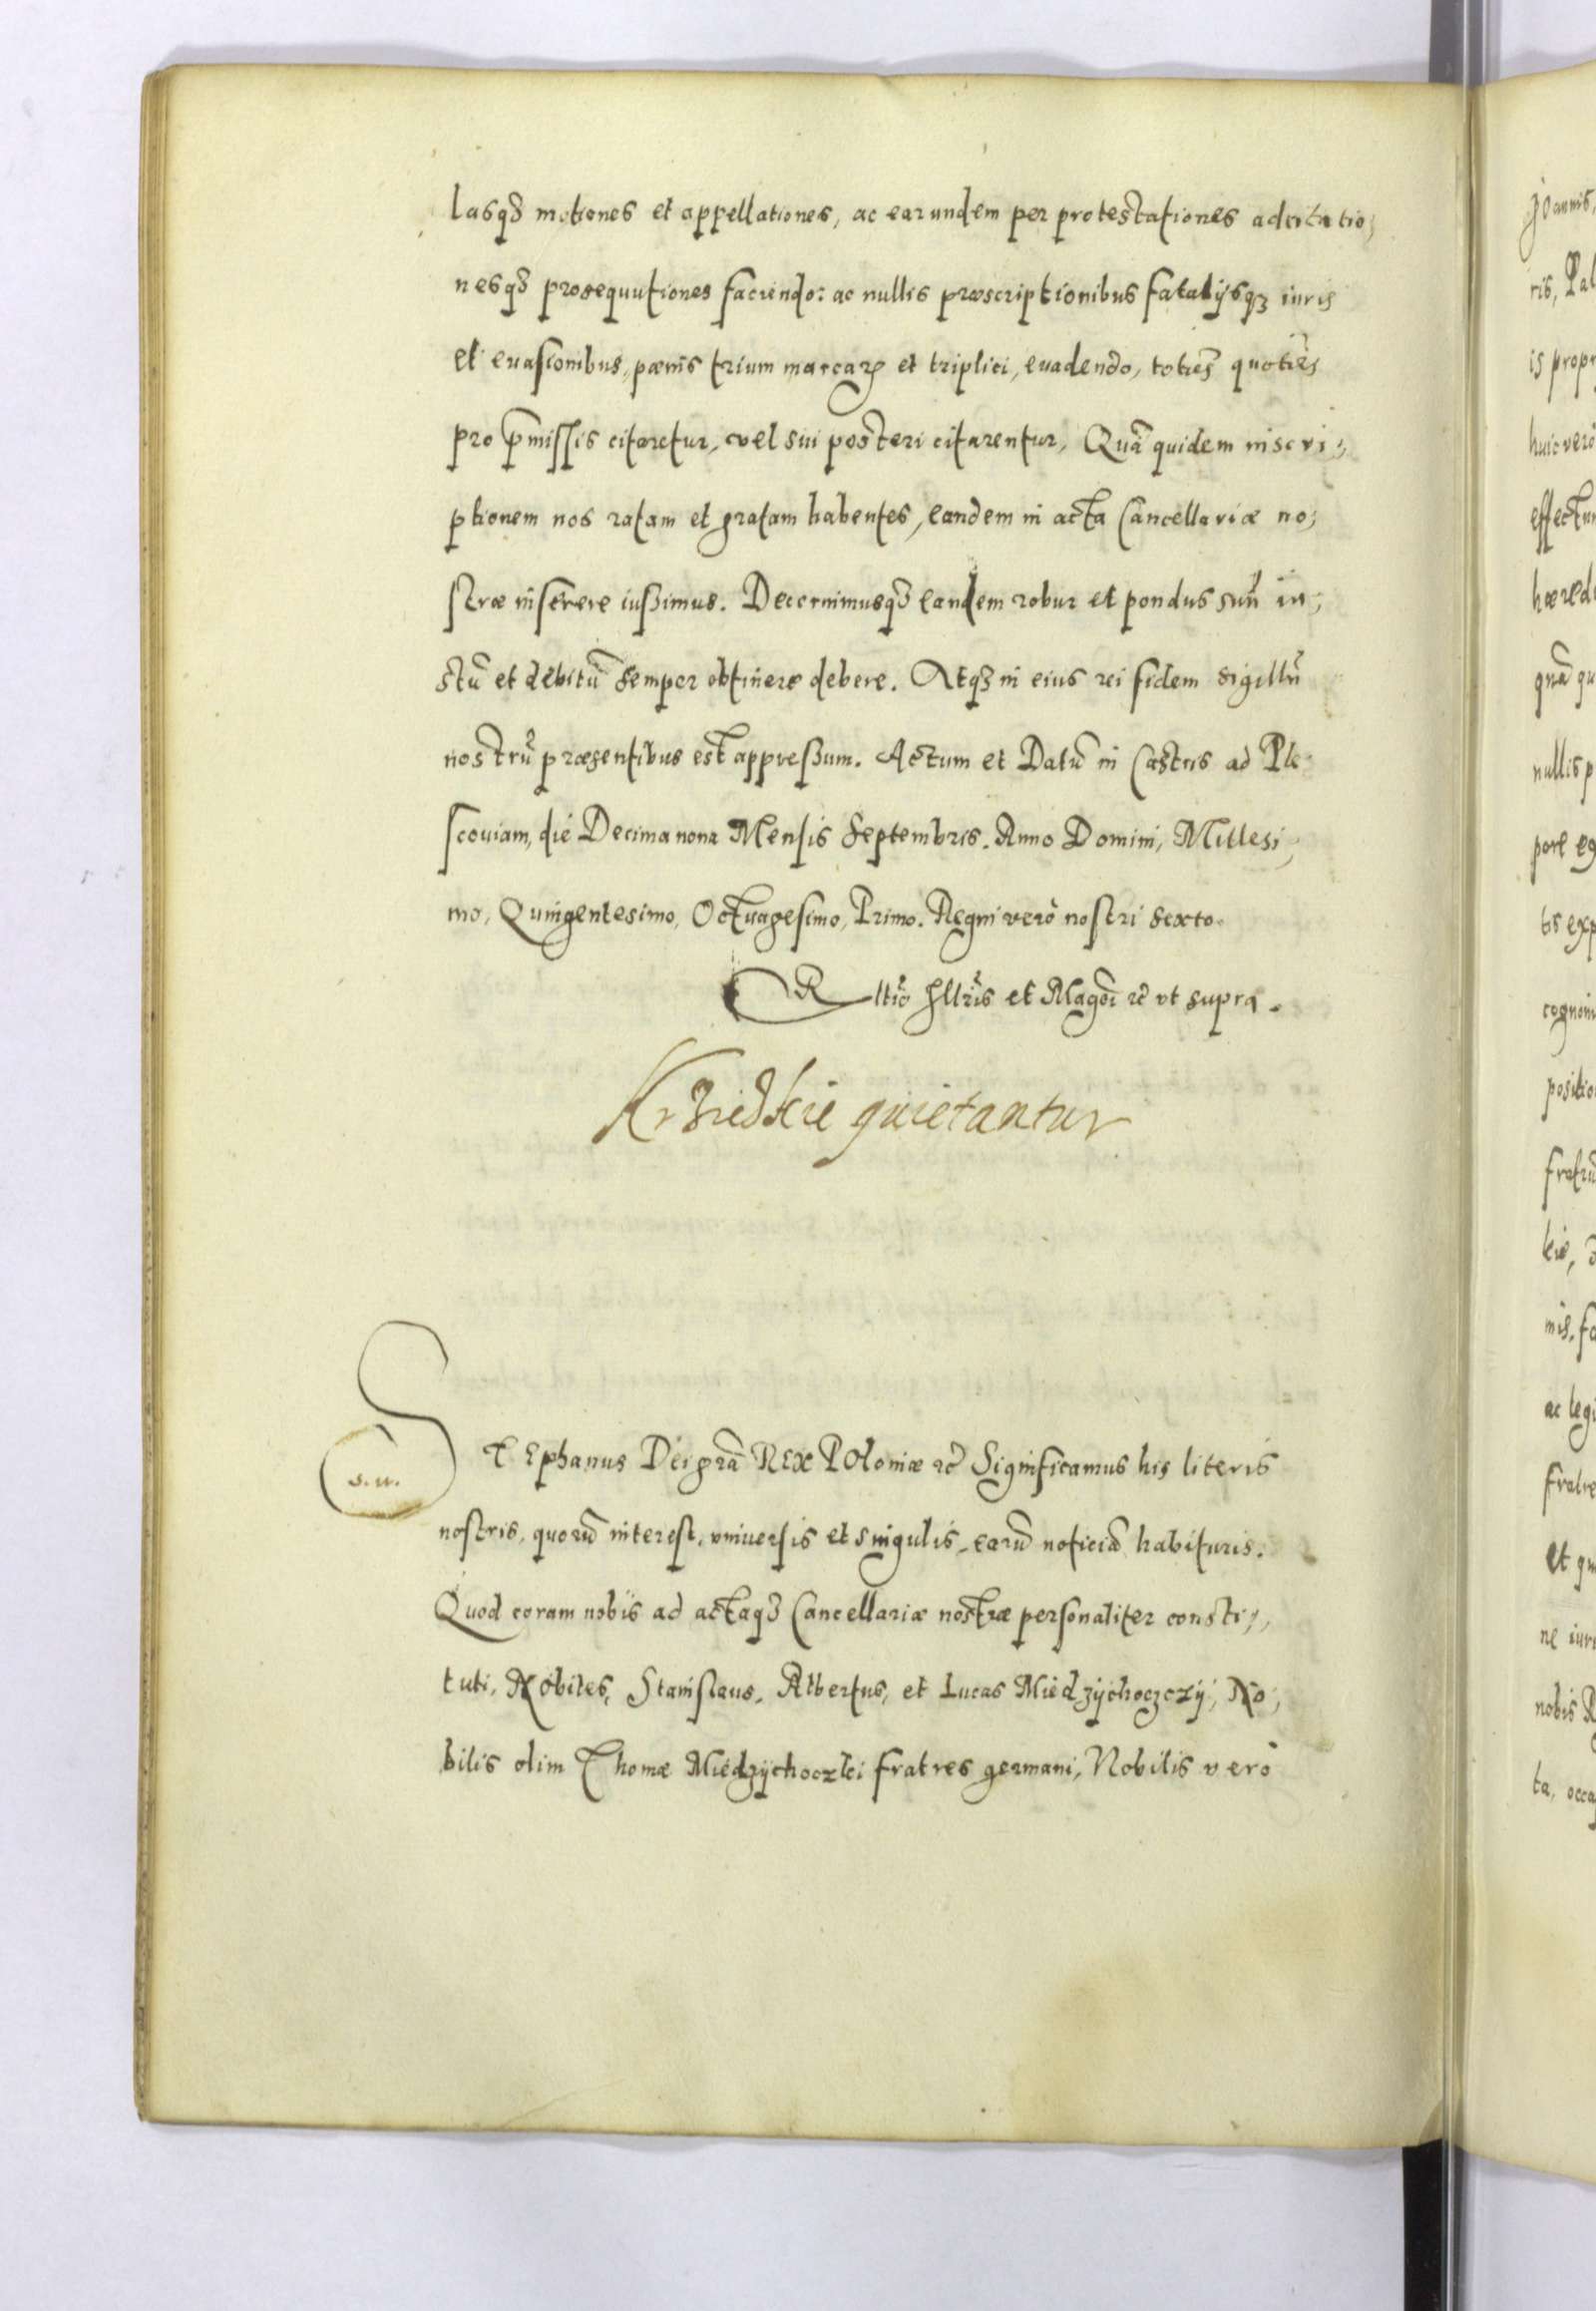 lasq3 motiones et appellationes, ac earundem per protestationes adcitatio;
nesq3 prosequutiones faciendo: ac nullis præscriptionibus fatalijsq3 iuris
et euasionibus, pœnis trium marcaꝝ et triplici, euadendo, toties quoties
pro p̃missis citaretur, vel sui posteri citarentur, Quã quidem inscri;
ptionem nos ratam et gratam habentes, eandem in acta Cancellariæ no;
stræ inserere iussimus. Decernimusq3 eandem robur et pondus suũ iu;
stũ et debitũ semper obtinere debere. Atq3 in eius rei fidem sigillũ
nostrũ præsentibus est appressum. Actum et Datũ in Castris ad Ple
scouiam, die Decima nona Mensis Septembris. Anno Domini, Millesi;
mo, Quingentesimo, Octuagesimo, Primo. Regni verò nostri sexto.
Rltio Illris et Magci etc̃ vt supra.
Krzidkie quietantur
STEphanus Dei grã REX POloniæ etc̃ Significamus his literis
s. u.
nostris, quorũ interest, vniuersis et singulis, earũ noticiã habituris.
Quod coram nobis ad actaq3 Cancellariæ nostræ personaliter consti;
tuti, Nobiles, Stanislaus, Albertus, et Lucas Miedzychoczczy, No;
bilis olim Thomæ Miedzychoczki fratres germani, Nobilis verò
Joannis,
ris, Pal
is propr
huic verò
effectum
hæredi
quã qu
nullis p
pore eg
tis exp
cognom
positio
fratrũ
kie,
nis, fa
ac legi
fratre
et qu
ne iuri
nobis R
ta, occa